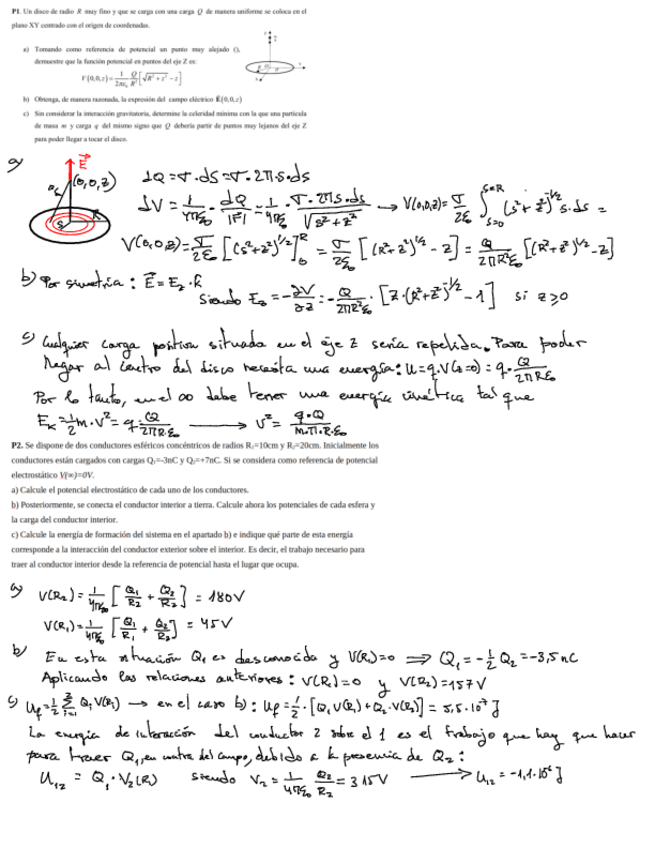 P1. Un disco de radio R muy fino y que se carga con una carga Q de manera uniforme se coloca en el
plano XY centrado con el origen de coordenadas.
a) Tomando como referencia de potencial un punto muy alejado (),
demuestre que la función potencial en puntos del eje Z es:
V(0,0,z) = 1/(2πε₀) Q/R² [√(R²+z²) − z]
b) Obtenga, de manera razonada, la expresión del campo eléctrico E(0,0,z)
c) Sin considerar la interacción gravitatoria, determine la celeridad mínima con la que una partícula
de masa m y carga q del mismo signo que Q debería partir de puntos muy lejanos del eje Z
para poder llegar a tocar el disco.
a) E⃗ (0,0,z) R
dQ = σ·dS = σ·2π·s·ds
dV = 1/(4πε₀) dQ/|r⃗| = 1/(4πε₀) · σ·2πs·ds/√(s²+z²) → V(0,0,z) = σ/(2ε₀) ∫ₛ₌₀ˢ⁼ᴿ (s²+z²)^(-1/2) s·ds =
V(0,0,z) = σ/(2ε₀) [(s²+z²)^(1/2)]₀ᴿ = σ/(2ε₀) [(R²+z²)^(1/2) − z] = Q/(2πR²ε₀) [(R²+z²)^(1/2) − z]
b) Por simetría: E⃗ = E_z·k̂
Siendo E_z = −∂V/∂z = −Q/(2πR²ε₀) · [z·(R²+z²)^(-1/2) − 1] si z≥0
c) Cualquier carga positiva situada en el eje z sería repelida. Para poder
llegar al centro del disco necesita una energía: U = q·V(z=0) = q·Q/(2πRε₀)
Por lo tanto, en el ∞ debe tener una energía cinética tal que
E_k = 1/2 m·v² = q Q/(2πR·ε₀) → v² = q·Q/(m·π·R·ε₀)
P2. Se dispone de dos conductores esféricos concéntricos de radios R₁=10cm y R₂=20cm. Inicialmente los
conductores están cargados con cargas Q₁=-3nC y Q₂=+7nC. Si se considera como referencia de potencial
electrostático V(∞)=0V.
a) Calcule el potencial electrostático de cada uno de los conductores.
b) Posteriormente, se conecta el conductor interior a tierra. Calcule ahora los potenciales de cada esfera y
la carga del conductor interior.
c) Calcule la energía de formación del sistema en el apartado b) e indique qué parte de esta energía
corresponde a la interacción del conductor exterior sobre el interior. Es decir, el trabajo necesario para
traer al conductor interior desde la referencia de potencial hasta el lugar que ocupa.
a) V(R₂) = 1/(4πε₀) [Q₁/R₂ + Q₂/R₂] = 180V
V(R₁) = 1/(4πε₀) [Q₁/R₁ + Q₂/R₂] = 45V
b) En esta situación Q₁ es desconocida y V(R₁)=0 ⟹ Q₁ = −1/2 Q₂ = −3,5 nC
Aplicando las relaciones anteriores: V(R₁)=0 y V(R₂)=157V
c) U_f = 1/2 Σᵢ₌₁² Qᵢ V(Rᵢ) → en el caso b): U_f = 1/2 · [Q₁V(R₁) + Q₂·V(R₂)] = 5,5·10⁻⁷ J
La energía de interacción del conductor 2 sobre el 1 es el trabajo que hay que hacer
para traer Q₁, en contra del campo, debido a la presencia de Q₂:
U₁₂ = Q₁·V₂(R₁) siendo V₂ = 1/(4πε₀) Q₂/R₂ = 315V → U₁₂ = −1,1·10⁻⁶ J